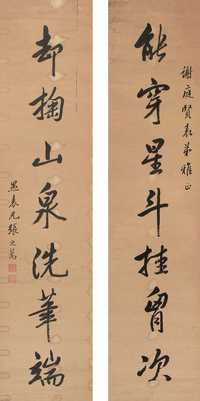 謝庭賢表弟雅正
能穿星斗挂胷次
却掬山泉洗筆端
愚表兄張之萬